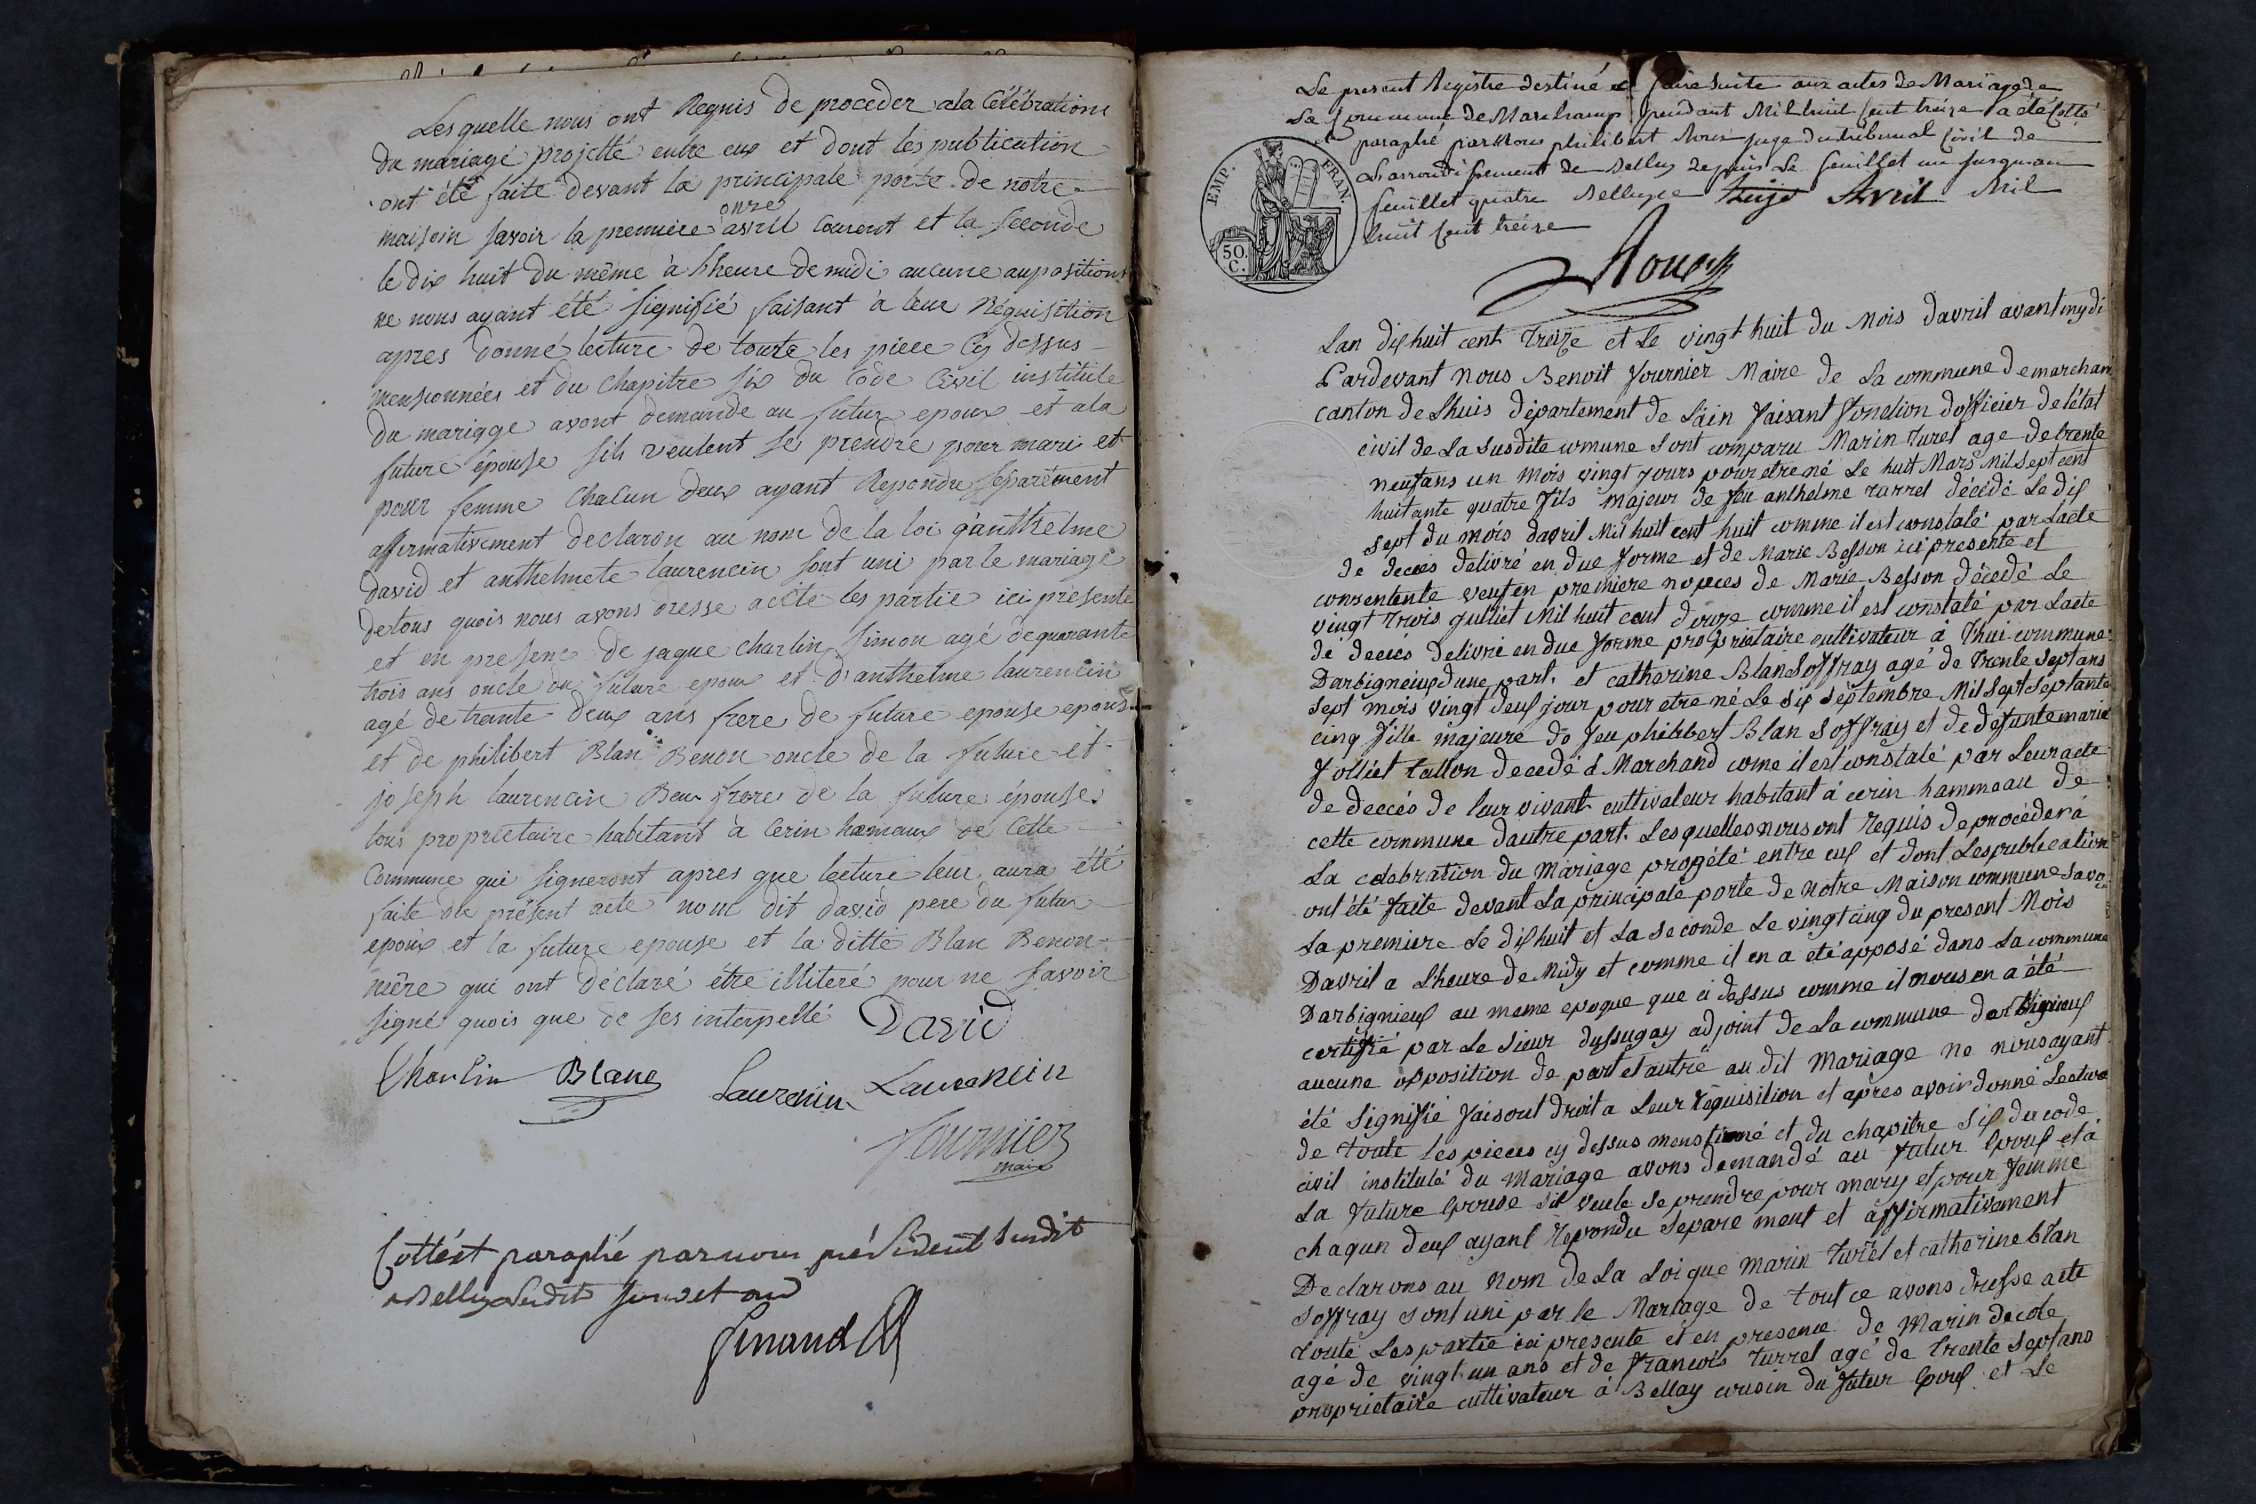 Lesquelle nous ont Requis de proceder ala Célébrations
du mariagé projetté entre eux et dont les publication
ont été faite devant la principale porte de notre
onze
maison savoir la premiere avril courent et la seconde
le dix huit du même à l'heure de midi aucune aupositions
ne nous ayant été signifié faisant à leur Réquisition
apres donné lecture de toute les piece Cy dessus
mensionnées et du Chapitre six du Code Civil institulé
du mariage avont demande au futur epoux et ala
future épouse sils veulent se prendre pour mari et
pour femme Chacun deux ayant Repondu séparément
affirmativement declaron au nom de la loi q'anthelme
david et anthelmete laurencin sont uni par le mariage
de tous quois nous avons dresse acte les partie ici presente
et en presenc de jaque charlin simon agé de quarante
trois ans oncle du future epoux et d'anthelme laurencin
agé de trante deux ans frere de future epouse epous
et de philibert Blan Benon oncle de la future et
joseph laurencin Beu frere de la future épouse
tous proprietaire habitant à Cerin hamaux de Cette
Commune qui signeront apres que lecture leur aura été
faite du présent acte nom dit david pere du futur
epoux et la future epouse et la ditte Blan Benon
mère qui ont déclaré étre illiteré pour ne savoir
signé quois que de ses interpellé David
Charlin Blanc Laurencin Laurencin
fournier
maire
Cotté et paraphé par nous président susdit
a Belley
Le present Registre destiné a faire suite aux actes de Mariage de
La Commune de Marchamp pendant Mil huit cent treize a été Cotté
et paraphé par Nous philibert Roux juge du tribunal Civil de
L'arrondissement de Belley depuis Le feuillet un jusquau
feuillet quatre Belley ce Avril Mil
huit cent treize
Roux
EMP. FRAN.
50 C.
Lan dix huit cent Treize et Le vingt huit du Mois davril avant mydi
Pardevant Nous Benoit fournier Maire de La commune de marcham
canton de Lhuis département de Lain faisant fonction dofficier de létat
civil de La susdite comune sont comparu Marin turel age de trente
neuf ans un Mois vingt jours pour etre né Le huit Mars Mil sept cent
huitante quatre fils majeur de feu anthelme turrel décédé Le dix
sept du mois davril Mil huit cent huit comme il est constaté par Lacte
de deces delivré en due forme et de Marie Besson ici presente et
consentente veuf en premiere nopces de Marie Besson décédé Le
vingt trois julliet Mil huit cent douze comme il est constaté par Lacte
de décés delivré en due forme proprietaire cultivateur à Thui commune
Darbignieux dune part. et catherine Blan Soffray agé de trente sept ans
sept mois vingt deux jour pour etre né Le six septembre Mil Sept Septante
cinq fille majeure de feu philibert Blan Soffray et de defunte marie
Jolliet tallon decedé à Marchand come il est constaté par Leur acte
de deccés de leur vivant cultivateur habitant à cerin hammeau de
cette commune dautre part. Les quelles nous ont requis de procéder à
La celebration du Mariage progété entre eux et dont Les publication
ont été faite devant La principale porte de notre Maison commune savoir
La premiere Le dix huit et La seconde Le vingt cinq du present Mois
Davril a Lheure de Midy et comme il en a eté apposé dans La commune
Darbignieux au meme epoque que ci dessus comme il nous en a été
certifié par Le sieur dussugay adjoint de La commune darbignieux
aucune opposition de part et autre au dit Mariage ne nous ayant
été signifié faisont droit a Leur réquisition et apres avoir donné Lecture
de toute Les pieces cy dessus menstionné et du chapitre six du code
civil institulé du Mariage avons demandé au futur Epoux et à
La future Epouse sil veule se prendre pour mary et pour femme
chaqun deux ayant repondu separe ment et affirmativement
Declarons au Nom de La Loi que Marin turel et catherine blan
Soffray sont uni par le Mariage de tout ce avons dresse acte
toute Les partie ici presente et en presence de Marin decote
agé de vingt un ans et de francois turrel agé de trente sept ans
proprietaire cultivateur à Bellay cousin du futur Epoux et Le